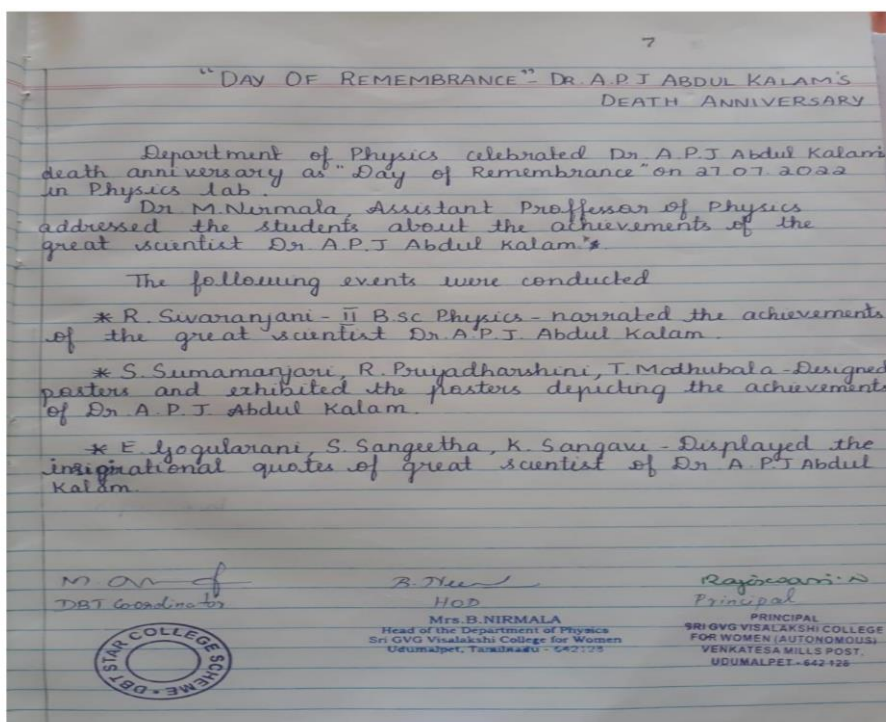 7
"DAY OF REMEMBRANCE" - DR. A.P.J ABDUL KALAM'S
DEATH ANNIVERSARY
Department of Physics celebrated Dr. A.P.J Abdul Kalam's
death anniversary as "Day of Remembrance" on 27.07.2022
in Physics lab.
Dr M.Nirmala, Assistant Proffessor of Physics
addressed the students about the achievements of the
great scientist Dr. A.P.J Abdul Kalam.
The following events were conducted
* R. Swaranjani - II B.sc Physics - narrated the achievements
of the great scientist Dr. A.P.J. Abdul Kalam.
* S. Sumamanjari, R. Priyadharshini, T. Madhubala - Designed
posters and exhibited the posters depicting the achievements
of Dr. A.P.J. Abdul Kalam.
* E. Gogularani, S. Sangeetha, K. Sangavi - Displayed the
insigirational quotes of great scientist of Dr A.P.J Abdul
Kalam.
DBT Coordinator
HOD
Principal
DBT STAR COLLEGE SCHEME
Mrs.B.NIRMALA
Head of the Department of Physics
Sri GVG Visalakshi College for Women
Udumalpet, Tamilnadu - 642128
PRINCIPAL
SRI GVG VISALAKSHI COLLEGE
FOR WOMEN (AUTONOMOUS)
VENKATESA MILLS POST,
UDUMALPET - 642 128